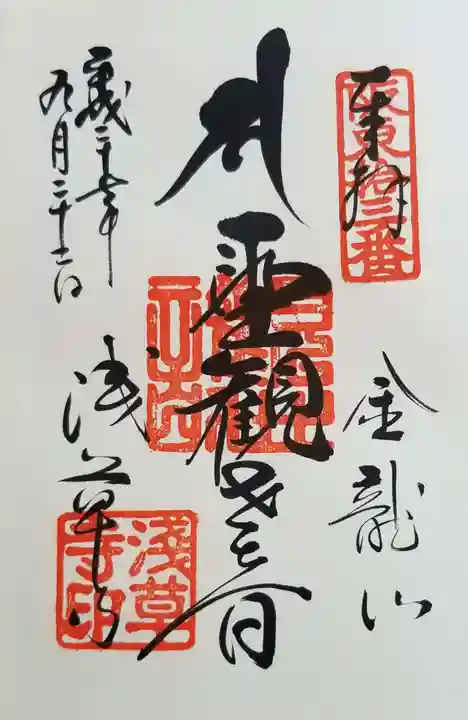 奉拝
坂東拾三番
金龍山
聖観世音
浅草寺
淺草寺印
九月二十二日